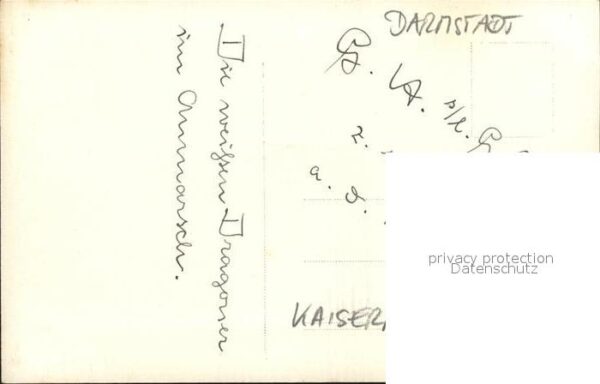 DARMSTADT
Die weißen Dragoner
im Anmarsch.
z.
a. d.
KAISER
privacy protection
Datenschutz